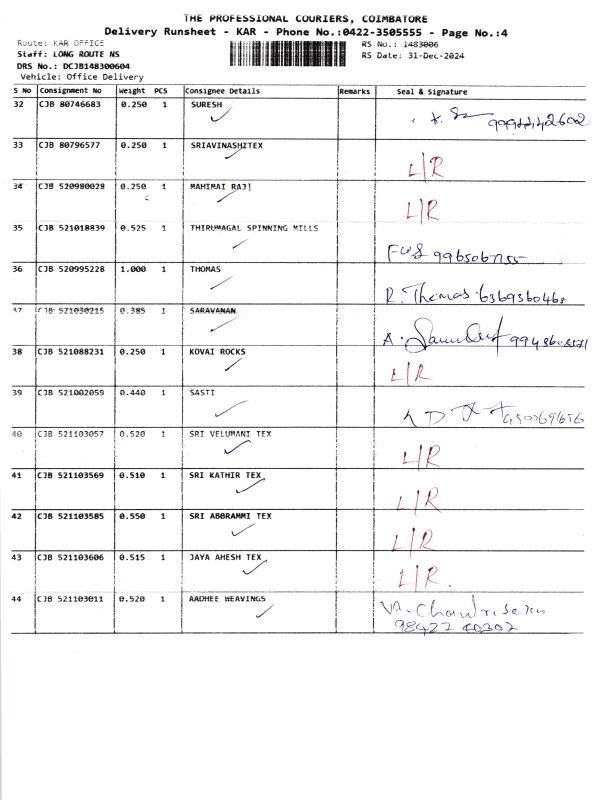 THE PROFESSIONAL COURIERS, COIMBATORE
Delivery Runsheet - KAR - Phone No.:0422-3505555 - Page No.:4
Route: KAR OFFICE
RS No.: 1483006
Staff: LONG ROUTE NS
RS Date: 31-Dec-2024
DRS No.: DCJB148300604
Vehicle: Office Delivery
S No Consignment No Weight PCS Consignee Details Remarks Seal & Signature
32 CJB 80746683 0.250 1 SURESH
33 CJB 80796577 0.250 1 SRIAVINASHITEX L/R
34 CJB 520980028 0.250 1 MAHIMAI RAJ L/R
35 CJB 521018839 0.525 1 THIRUMAGAL SPINNING MILLS
36 CJB 520995228 1.000 1 THOMAS R. Thomas 6369360468
37 CJB 521030215 0.385 1 SARAVANAN A.
38 CJB 521088231 0.250 1 KOVAI ROCKS L/R
39 CJB 521002059 0.440 1 SASTI
40 CJB 521103057 0.520 1 SRI VELUMANI TEX L/R
41 CJB 521103569 0.510 1 SRI KATHIR TEX L/R
42 CJB 521103585 0.550 1 SRI ABBRAMMI TEX L/R
43 CJB 521103606 0.515 1 JAYA AHESH TEX L/R.
44 CJB 521103011 0.520 1 AADHEE WEAVINGS
98427 40302